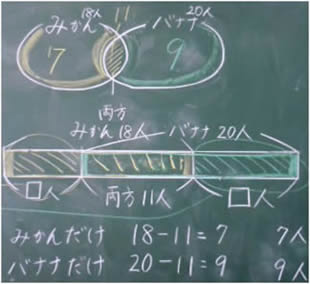 18人 11 20人
みかん バナナ
7 9
両方
みかん18人 バナナ20人
□人 両方11人 □人
みかんだけ 18-11=7 7人
バナナだけ 20-11=9 9人